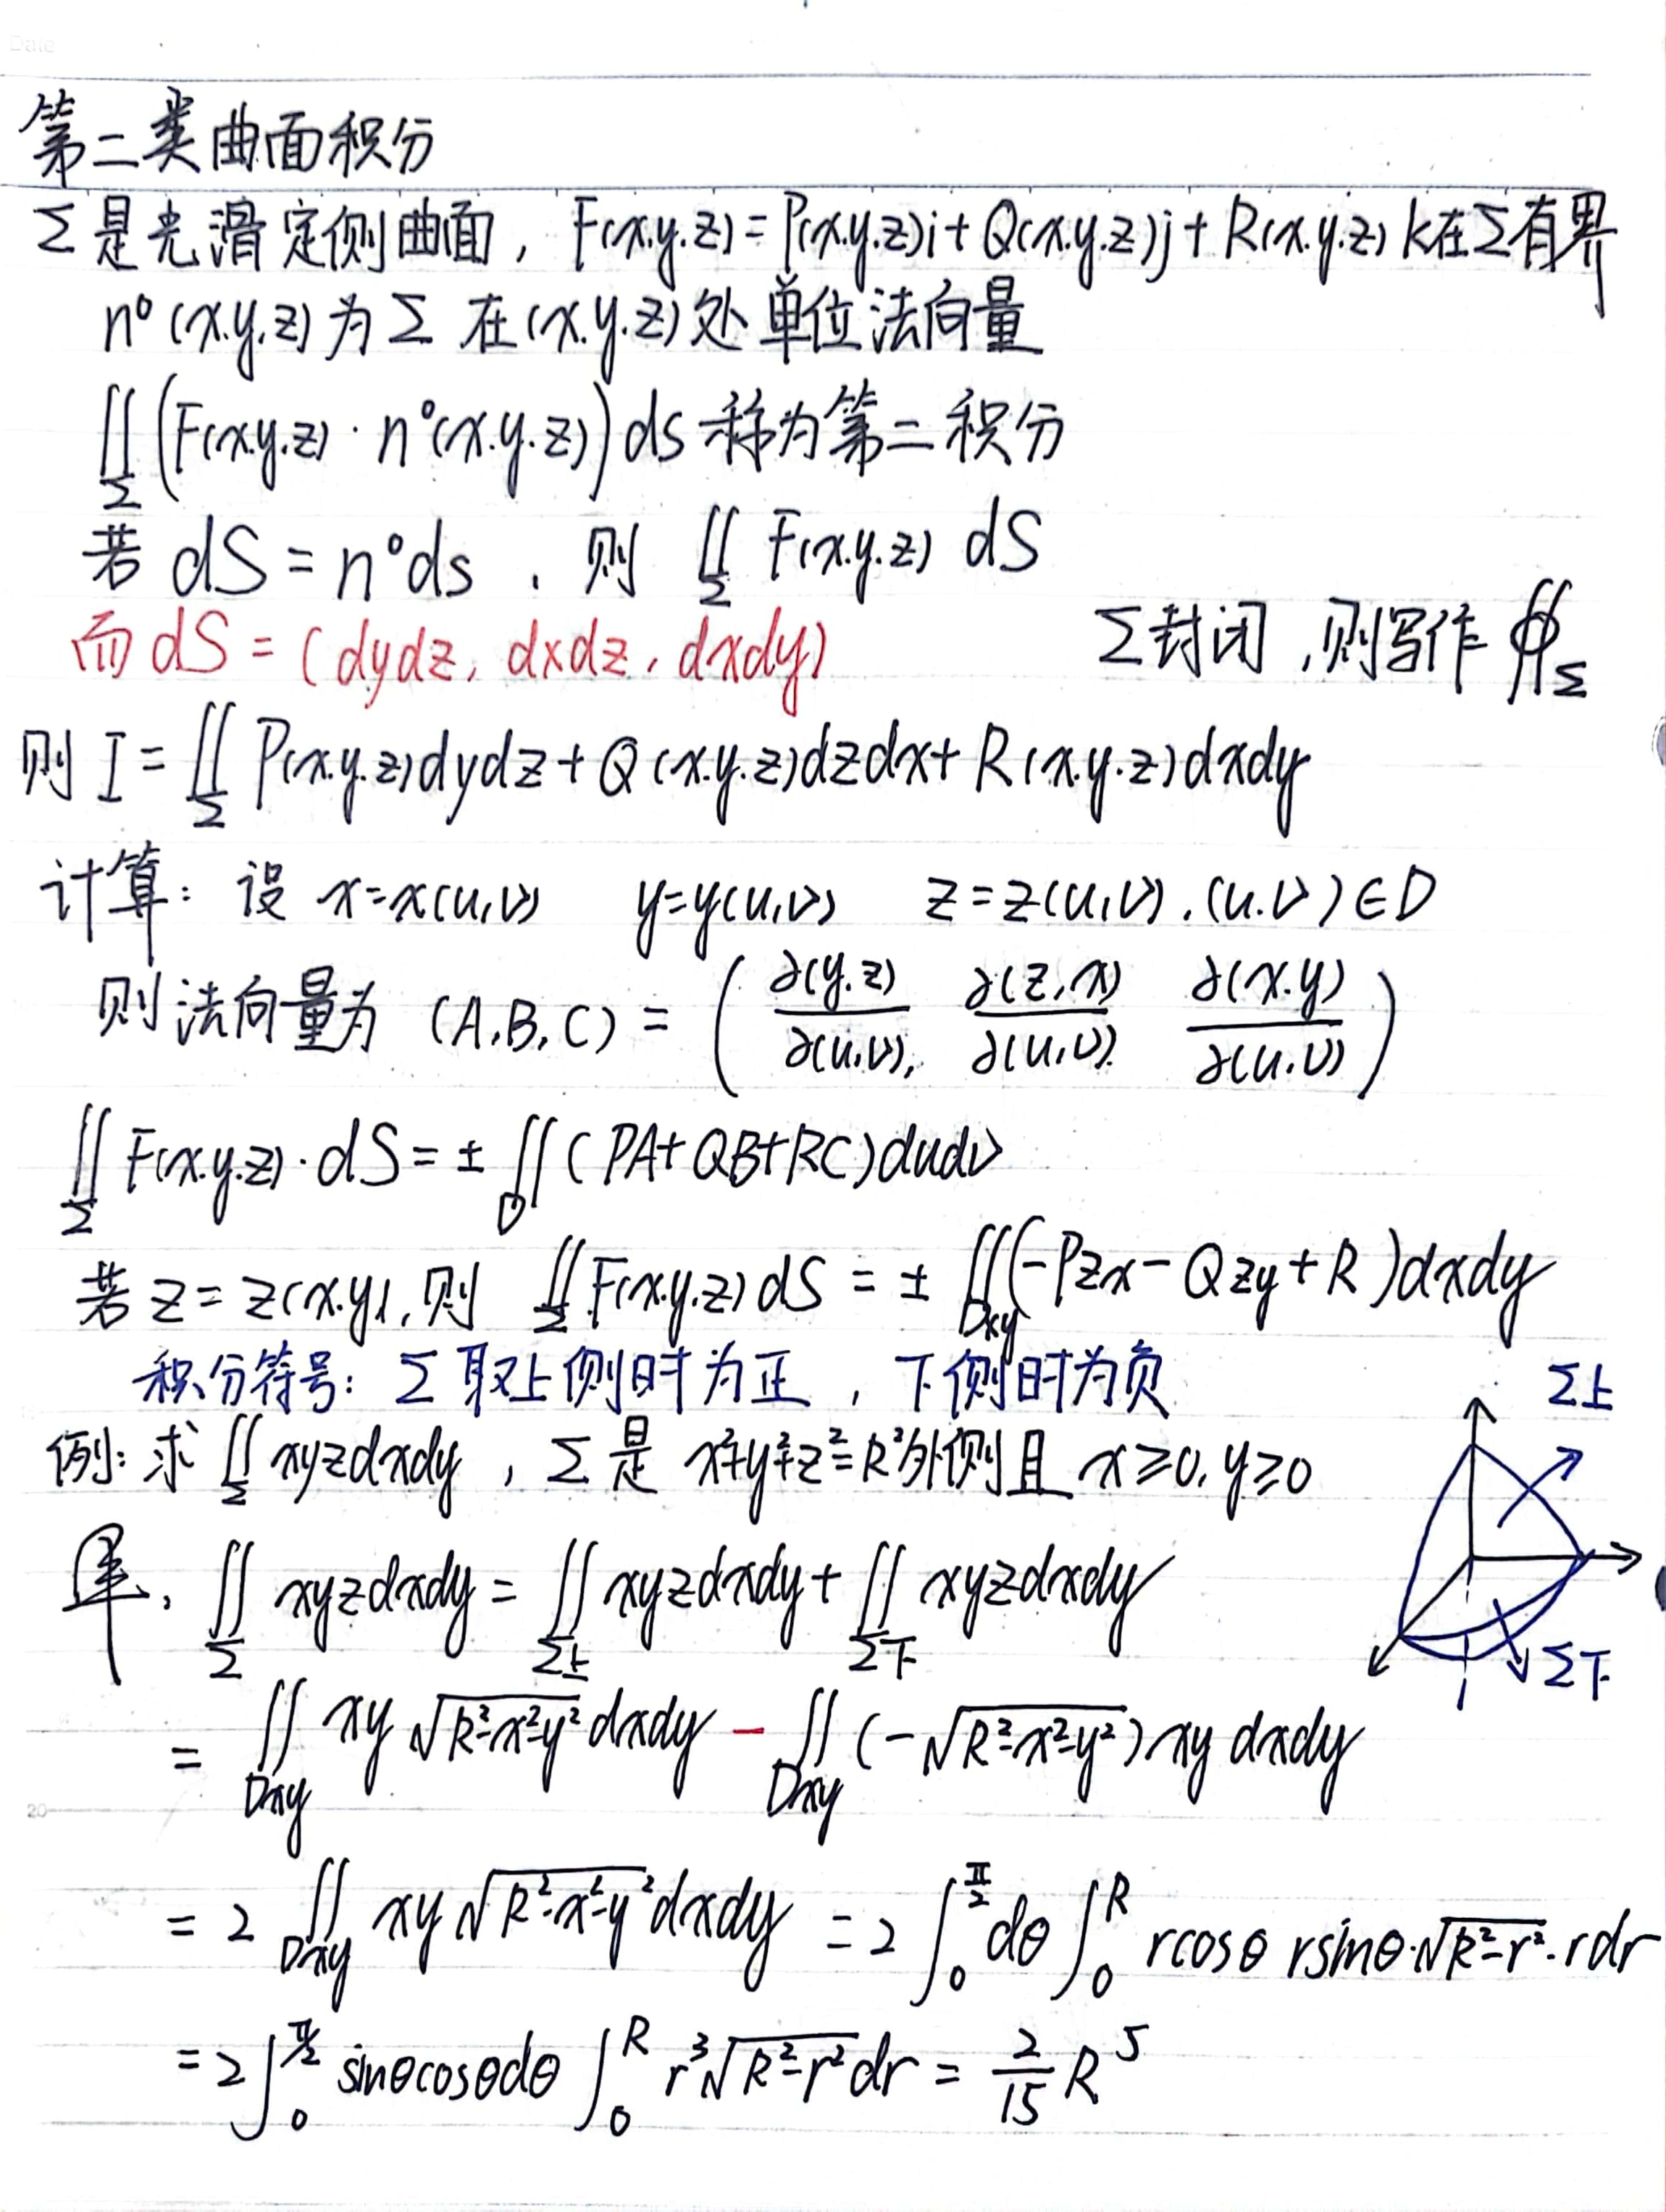 Date
第二类曲面积分
Σ是光滑定侧曲面, F(x.y.z)=P(x.y.z)i+Q(x.y.z)j+R(x.y.z)k在Σ有界
n°(x.y.z)为Σ在(x.y.z)处单位法向量
∬_Σ (F(x.y.z)·n°(x.y.z))ds 称为第二积分
若 dS=n°ds , 则 ∬_Σ F(x.y.z) dS
而 dS=(dydz, dxdz, dxdy) Σ封闭,则写作 ∯_Σ
则 I=∬_Σ P(x.y.z)dydz+Q(x.y.z)dzdx+R(x.y.z)dxdy
计算: 设 x=x(u,v) y=y(u,v) z=z(u,v).(u.v)∈D
则法向量为 (A,B,C)=(∂(y.z)/∂(u,v), ∂(z,x)/∂(u,v), ∂(x.y)/∂(u.v))
∬_Σ F(x.y.z)·dS=±∬_D (PA+QB+RC)dudv
若 z=z(x.y), 则 ∬_Σ F(x.y.z)dS=±∬_Dxy (-Pzx-Qzy+R)dxdy
积分符号: Σ取上侧时为正, 下侧时为负
Σ上
例: 求∬_Σ xyzdxdy, Σ是 x²+y²+z²=R²外侧且 x≥0, y≥0
∬_Σ xyzdxdy=∬_Σ上 xyzdxdy+∬_Σ下 xyzdxdy
Σ下
=∬_Dxy xy√(R²-x²-y²) dxdy - ∬_Dxy (-√(R²-x²-y²))xy dxdy
20
=2∬_Dxy xy√(R²-x²-y²) dxdy =2∫_0^(π/2) dθ ∫_0^R rcosθ rsinθ·√(R²-r²)·rdr
=2∫_0^(π/2) sinθcosθdθ ∫_0^R r³√(R²-r²) dr = 2/15 R⁵